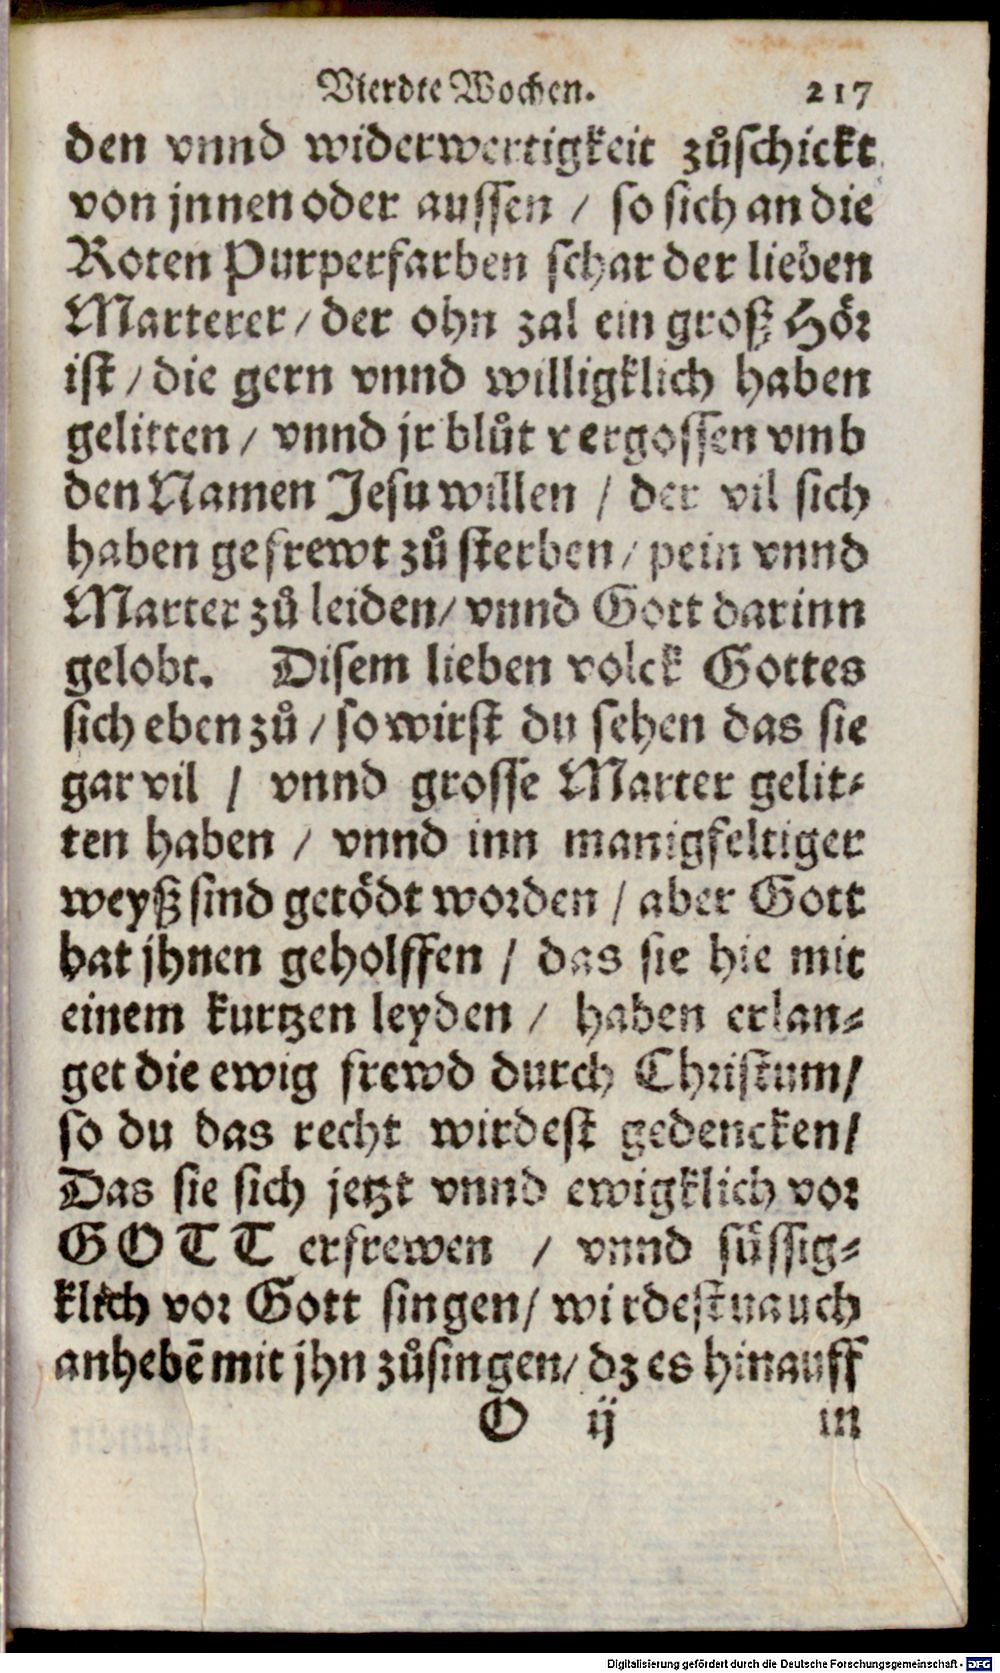 Vierdte Wochen. 217
den vnnd widerwertigkeit zůschickt
von jnnen oder aussen / so sich an die
Roten Purperfarben schar der lieben
Marterer / der ohn zal ein groß Hör
ist / die gern vnnd willigklich haben
gelitten / vnnd jr blůt vergossen vmb
den Namen Jesu willen / der vil sich
haben gefrewt zů sterben / pein vnnd
Marter zů leiden / vnnd Gott darinn
gelobt. Disem lieben volck Gottes
sich eben zů / so wirst du sehen das sie
gar vil / vnnd grosse Marter gelit-
ten haben / vnnd inn manigfeltiger
weyß sind getödt worden / aber Gott
hat jhnen geholffen / das sie hie mit
einem kurtzen leyden / haben erlan-
get die ewig frewd durch Christum /
so du das recht wirdest gedencken /
Das sie sich jetzt vnnd ewigklich vor
GOTT erfrewen / vnnd süssig-
klich vor Gott singen / wirdestu auch
anhebē mit jhn zůsingen / dz es hinauff
O ij in
Digitalisierung gefördert durch die Deutsche Forschungsgemeinschaft - DFG